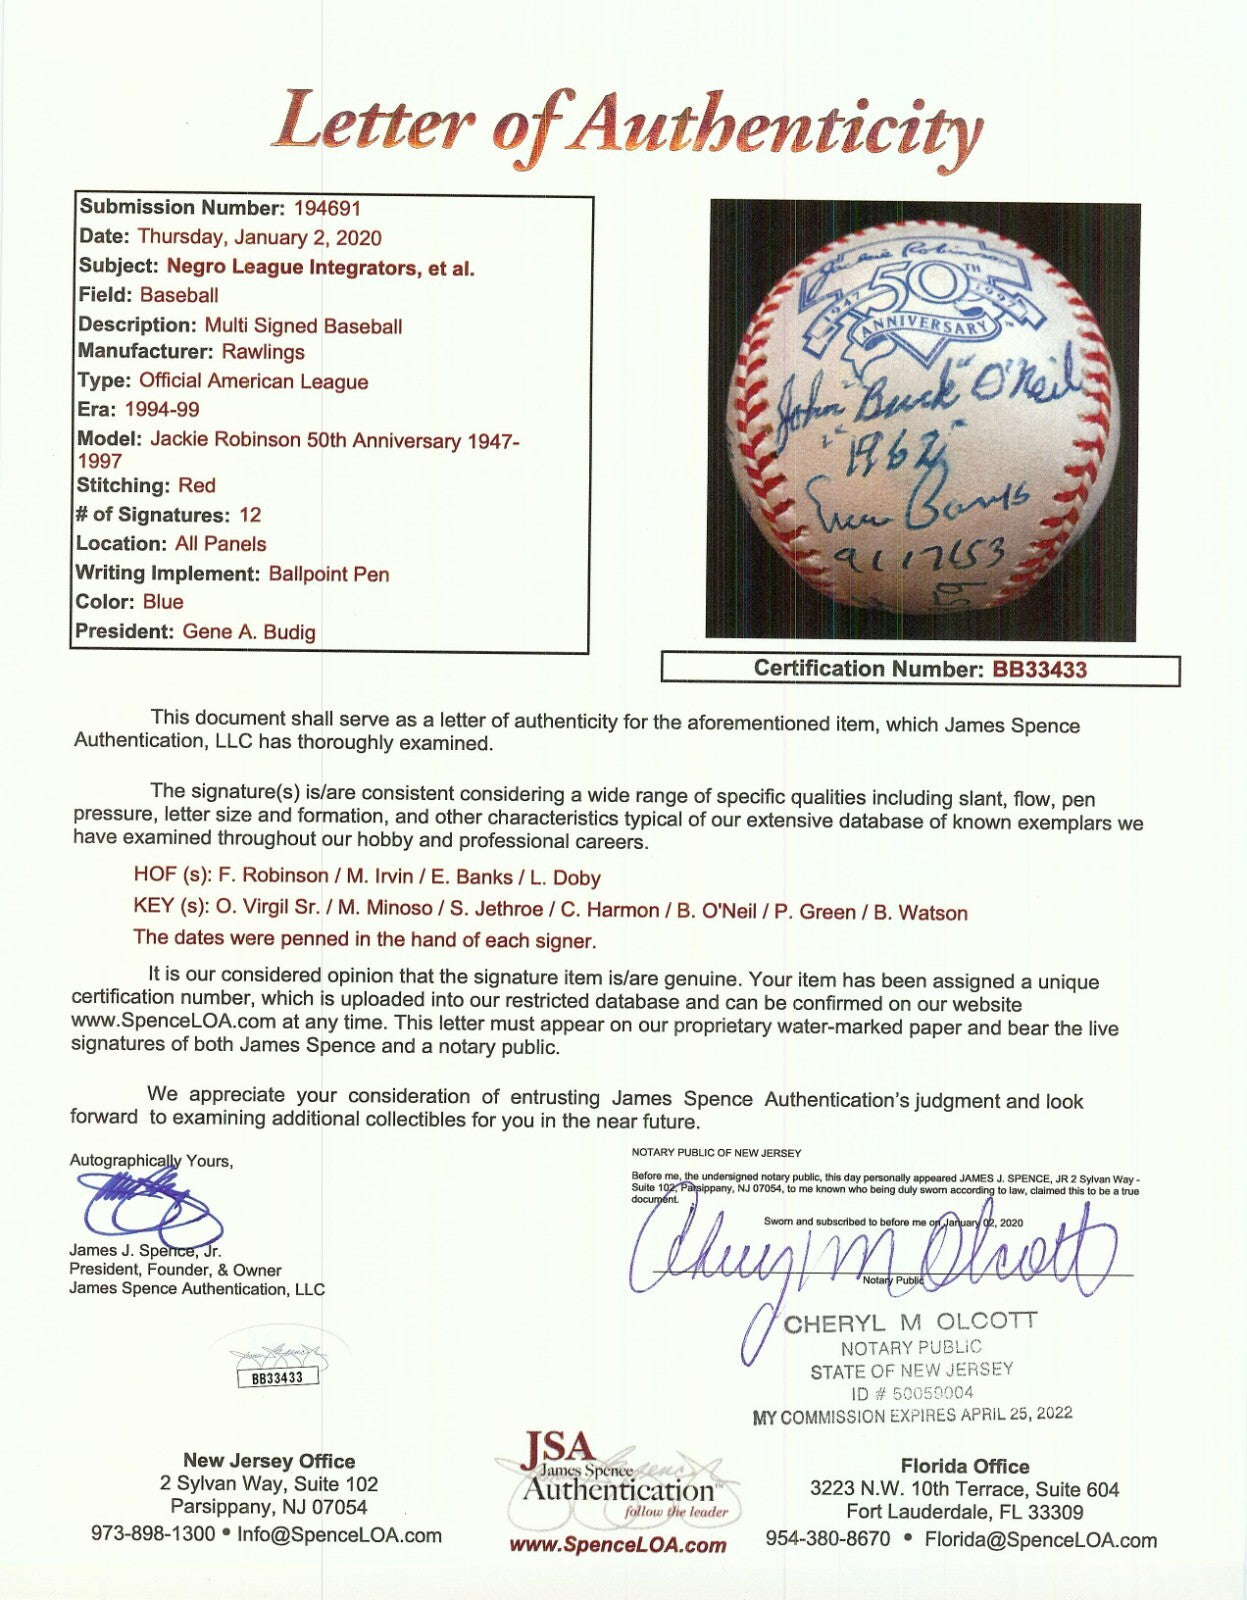 Letter of Authenticity
Submission Number: 194691
Date: Thursday, January 2, 2020
Subject: Negro League Integrators, et al.
Field: Baseball
Description: Multi Signed Baseball
Manufacturer: Rawlings
Type: Official American League
Era: 1994-99
Model: Jackie Robinson 50th Anniversary 1947-
1997
Stitching: Red
# of Signatures: 12
Location: All Panels
Writing Implement: Ballpoint Pen
Color: Blue
President: Gene A. Budig
Jackie Robinson
50TH
1947 1997
ANNIVERSARY™
John "Buck" O'Neil
"1962"
Ernie Banks
9/17/53
59
Certification Number: BB33433
This document shall serve as a letter of authenticity for the aforementioned item, which James Spence
Authentication, LLC has thoroughly examined.
The signature(s) is/are consistent considering a wide range of specific qualities including slant, flow, pen
pressure, letter size and formation, and other characteristics typical of our extensive database of known exemplars we
have examined throughout our hobby and professional careers.
HOF (s): F. Robinson / M. Irvin / E. Banks / L. Doby
KEY (s): O. Virgil Sr. / M. Minoso / S. Jethroe / C. Harmon / B. O'Neil / P. Green / B. Watson
The dates were penned in the hand of each signer.
It is our considered opinion that the signature item is/are genuine. Your item has been assigned a unique
certification number, which is uploaded into our restricted database and can be confirmed on our website
www.SpenceLOA.com at any time. This letter must appear on our proprietary water-marked paper and bear the live
signatures of both James Spence and a notary public.
We appreciate your consideration of entrusting James Spence Authentication's judgment and look
forward to examining additional collectibles for you in the near future.
Autographically Yours,
James J. Spence, Jr.
President, Founder, & Owner
James Spence Authentication, LLC
BB33433
NOTARY PUBLIC OF NEW JERSEY
Before me, the undersigned notary public, this day personally appeared JAMES J. SPENCE, JR 2 Sylvan Way -
Suite 102, Parsippany, NJ 07054, to me known who being duly sworn according to law, claimed this to be a true
document.
Sworn and subscribed to before me on January 02, 2020
Cheryl M Olcott
Notary Public
CHERYL M OLCOTT
NOTARY PUBLIC
STATE OF NEW JERSEY
ID # 50059004
MY COMMISSION EXPIRES APRIL 25, 2022
New Jersey Office
2 Sylvan Way, Suite 102
Parsippany, NJ 07054
973-898-1300 • Info@SpenceLOA.com
JSA
James Spence
Authentication™
follow the leader
www.SpenceLOA.com
Florida Office
3223 N.W. 10th Terrace, Suite 604
Fort Lauderdale, FL 33309
954-380-8670 • Florida@SpenceLOA.com